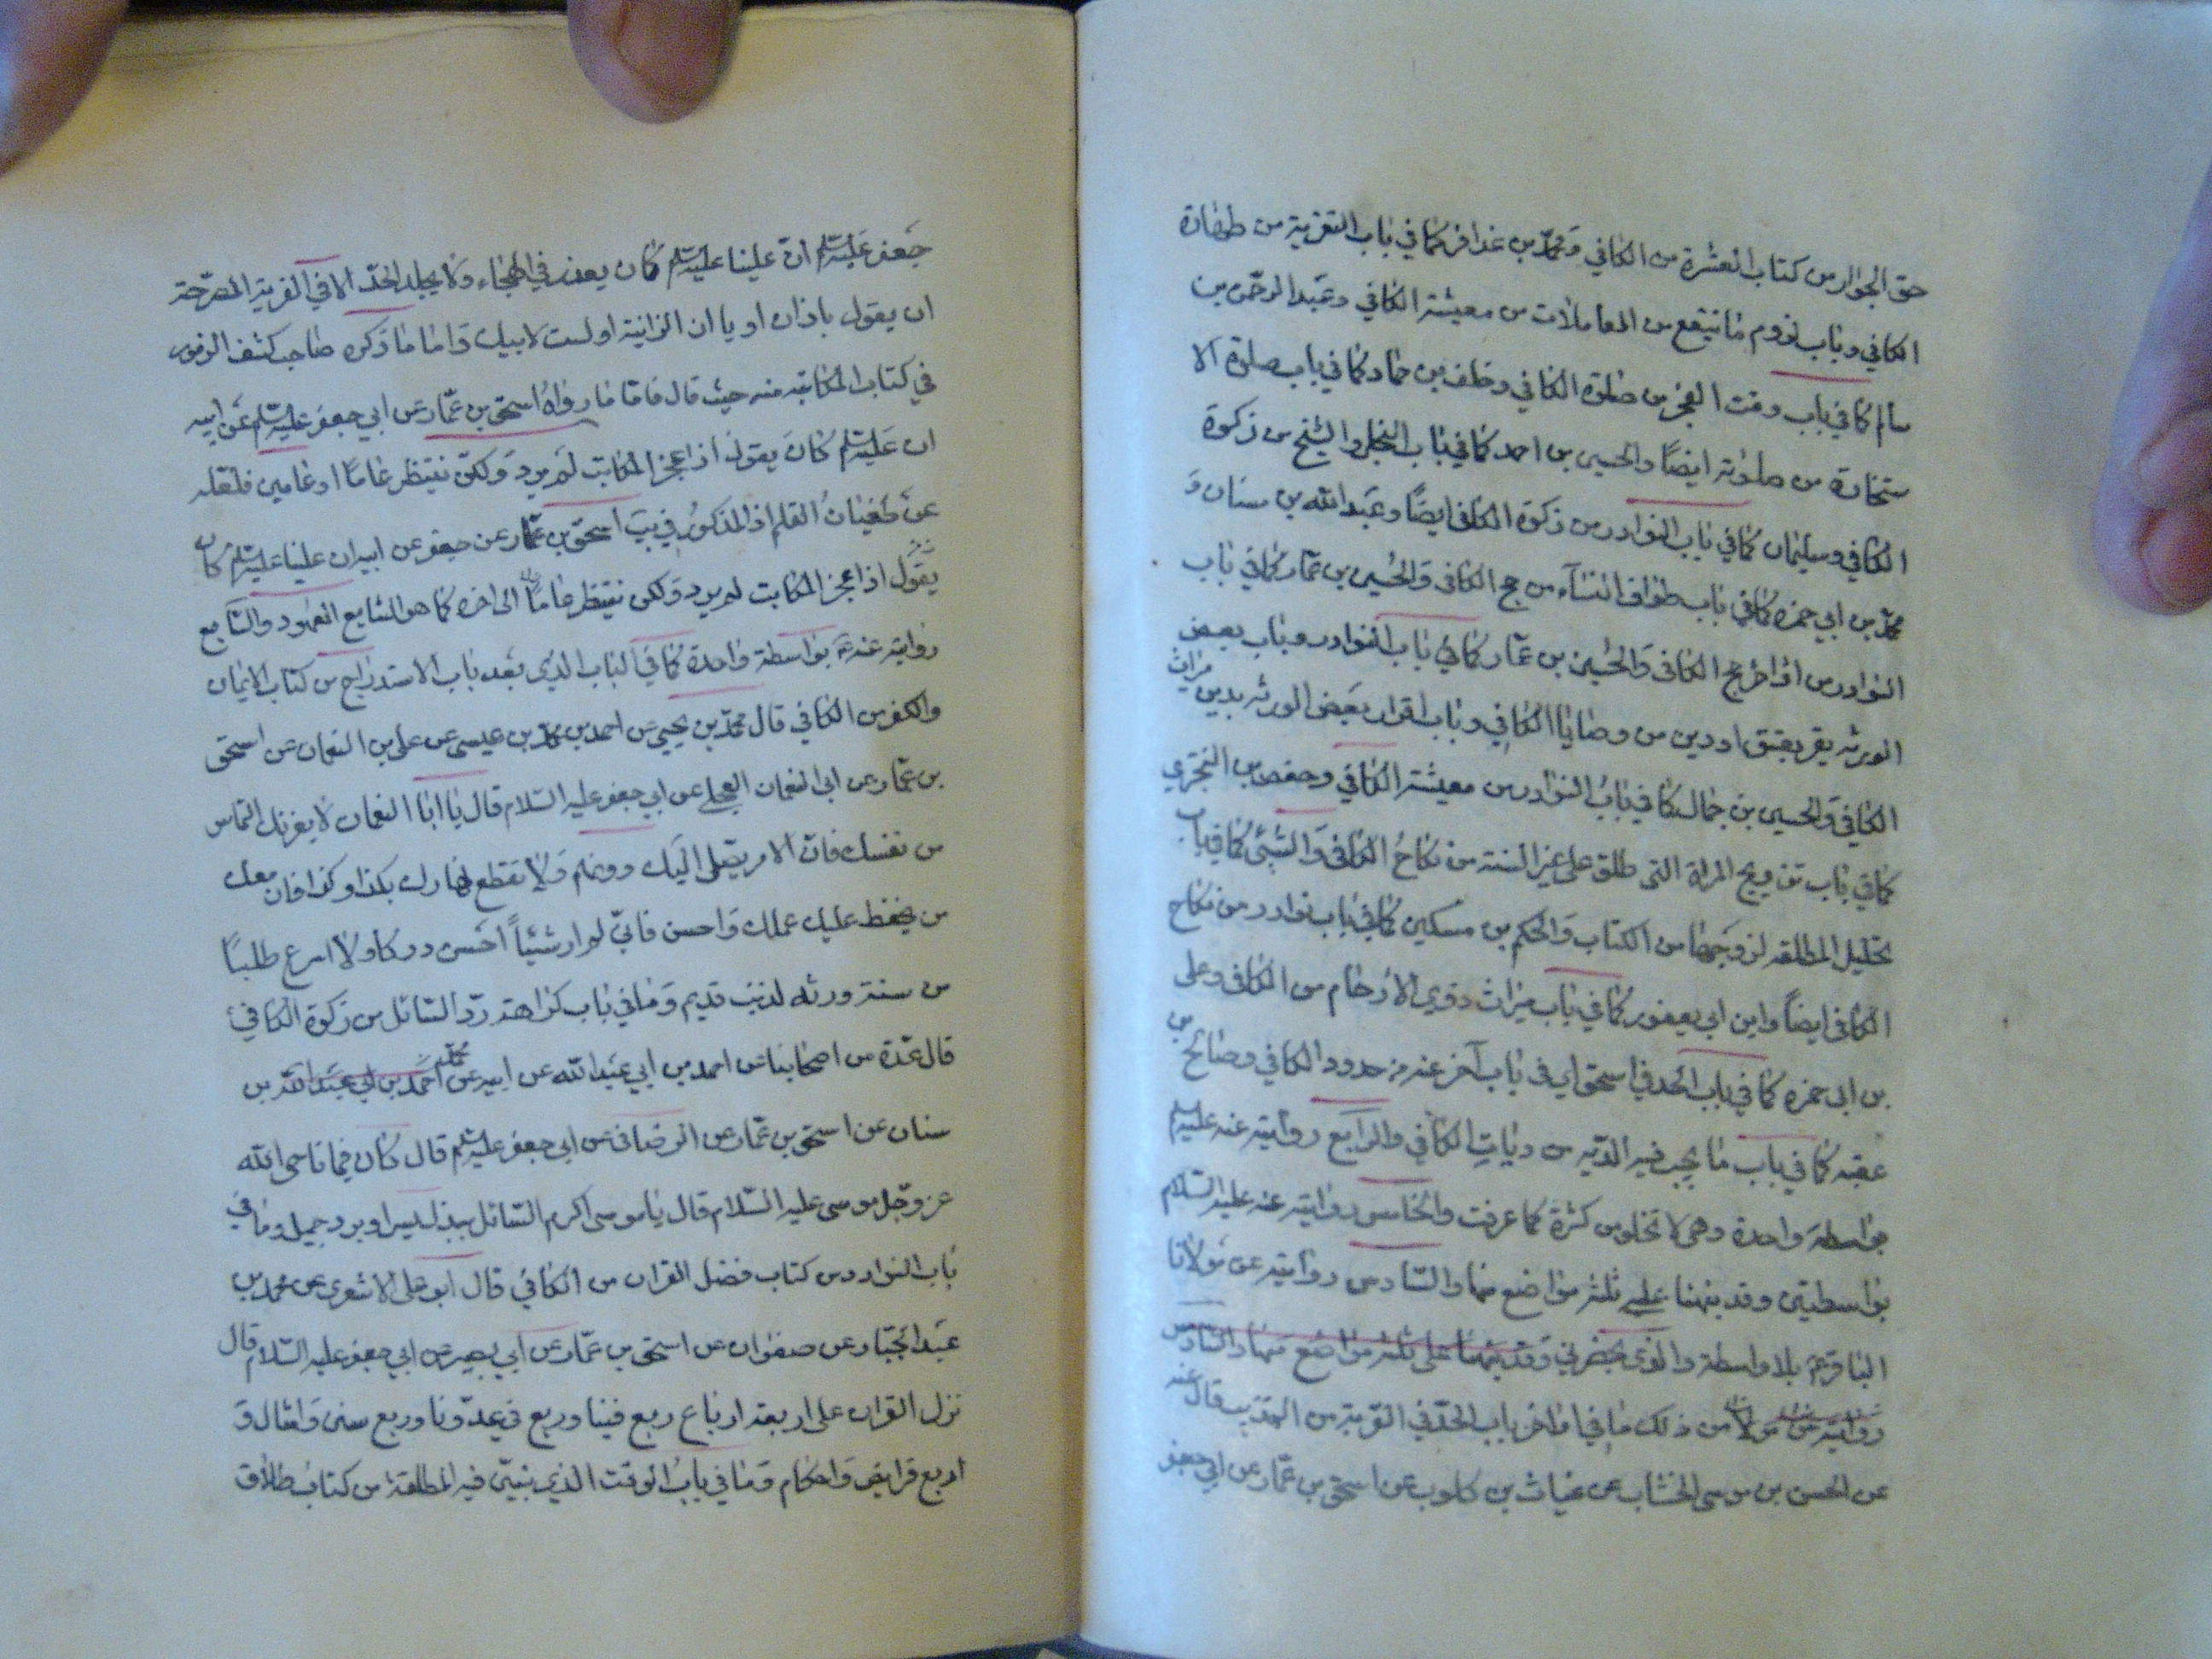 حق الجوار من كتاب العشرة من الكافي ومحمد بن عذافر كما في باب التعزية من طهارة
الكافي وباب لزوم ما ينتفع من المعاملات من معيشة الكافي وعبد الرحمن بن
سالم كما في باب وقت الفجر من صلوة الكافي وخلف بن حماد كما في باب صلوة الا
ستخارة من صلوته ايضاً والحسين بن احمد كما في باب البخل والشح من زكوة
الكافي وسليمان كما في باب النوادر من زكوة الكافي ايضاً وعبد الله بن سنان و
محمد بن ابي حمزه كما في باب طواف النساء من حج الكافي والحسين بن عمار كما في باب
النوادر من اواخر حج الكافي والحسين بن عمار كما في باب النوادر وباب بعض
الورثه يقر بعتق او دين من وصايا الكافي وباب اقرار بعض الورثه بدين من ميراث
الكافي والحسين بن جمال كما في باب النوادر من معيشة الكافي وحفص بن البختري
كما في باب تزويج المراة التى طلق على غير السنة من نكاح الكافي والمثنى كما في باب
تحليل المطلقه لزوجها من الكتاب والحكم بن مسكين كما في باب نوادر من نكاح
الكافي ايضاً وابن ابي يعفور كما في باب ميراث ذوى الارحام من الكافي وعلى
بن ابى حمزه كما في باب الحد في السحق اى في باب آخر عنه من حدود الكافي وصالح بن
عقبه كما في باب ما يجب فيه الديه من ديات الكافي والرابع روايته عنه عليه السلم
بواسطة واحدة وهى لا تخلو من كثرة كما عرفت والخامس روايته عنه عليه السلام
بواسطتين وقد نبهنا على ثلثة مواضع منها والسادس روايته عن مولانا
الباقر ع بلا واسطة والذى يحضرني وقد نبهنا على ثلثة مواضع منها والسادس
روايته عن مولانا من ذلك ما في اواخر باب الحد في الفرية من التهذيب قال عنه
عن الحسن بن موسى الخشاب عن غياث بن كلوب عن اسحق بن عمار عن ابي جعفر
جعفر عليه السلم ان عليا عليه السلم كان يعزر في الهجاء ولا يجلد الحد الا في الفرية المصرحة
ان يقول يا زان او يا ابن الزانية او لست لابيك واما ما ذكره صاحب كشف الرموز
في كتاب المكاتبه منه حيث قال فاما ما رواه اسحق بن عمار عن ابي جعفر عليه السلم عن ابيه
ان عليه السلم كان يقول اذا عجز المكاتب لم يرد ولكن ننتظر عاما او عامين فلعله
عن طغيان القلم اذ المذكور في يب اسحق بن عمار عن جعفر عن ابيه ان عليا عليه السلم كان
يقول اذا عجز المكاتب لم يرد ولكن ننتظر عاماً الى اخره كما هو الشايع المعهود والسابع
روايته عنه ع بواسطة واحدة كما في الباب الذي بعد باب الاستدراج من كتاب الايمان
والكفر من الكافي قال محمد بن يحيى عن احمد بن محمد بن عيسى عن على بن النعمان عن اسحق
بن عمار عن ابى النعمان العجلي عن ابي جعفر عليه السلام قال يا ابا النعمان لا يغرنك الناس
من نفسك فان الامر يصل اليك دونهم ولا تقطع نهارك بكذا وكذا فان معك
من يحفظ عليك عملك واحسن فاني لم ار شيئاً احسن دركا ولا اسرع طلباً
من حسنة لذنب قديم وما في باب كراهة رد السائل من زكوة الكافي
قال عدة من اصحابنا عن احمد بن ابي عبد الله عن ابيه عن احمد بن ابي عبد الله محمد بن
سنان عن اسحق بن عمار عن الوصافى عن ابي جعفر عليه السلم قال كان فيما ناجى الله
عز وجل موسى عليه السلام قال يا موسى اكرم السائل ببذل يسير او برد جميل وما في
باب النوادر من كتاب فضل القران من الكافي قال ابو على الاشعرى عن محمد بن
عبد الجبار عن صفوان عن اسحق بن عمار عن ابي بصير عن ابي جعفر عليه السلام قال
نزل القران على اربعة ارباع ربع فينا وربع في عدونا وربع سنن وامثال و
اربع فرايض واحكام وما في باب الوقت الذي تبين فيه المطلقة من كتاب طلاق